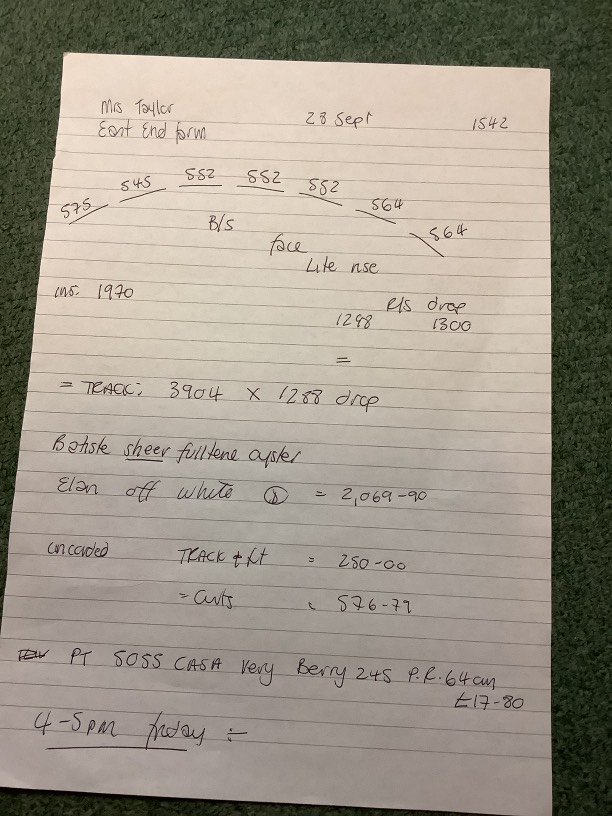 Mrs Taylor 28 Sept 1542
East End farm
575 545 552 552 552 564 564
B/S
face
Lite nse
ins. 1970
R/S drop
1298 1300
=
= TRACK: 3904 x 1288 drop
sheer
Elan off white = 2,069-90
uncorded TRACK + fit = 250-00
= curts 576-79
PT 5055 CASA Very Berry 245 P.R. 64cm
£17-80
4-5pm friday :-